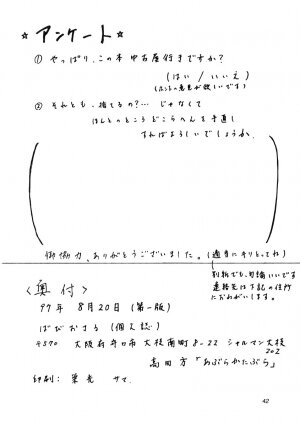 ☆アンケート☆
① やっぱり、この本中古屋行きですか?
(はい / いいえ)
(ホントの意見が欲しいです)
② それとも、捨てるの?… じゃなくて
ほんとのところどこらへんを手直し
すればよろしいでしょうか.
御協力、ありがとうございました。(適当にキリとってね)
別紙でも、勿論いいです
連絡先は下記の住所
におねがいします。
〈奥付〉
97年 8月20日 (第一版)
ばびおさる (個人誌)
〒570 大阪府守口市大枝南町8-22 シャルマン大枝
202
高田方「あぶらかたぶら」
印刷: 栄光 サマ.
42